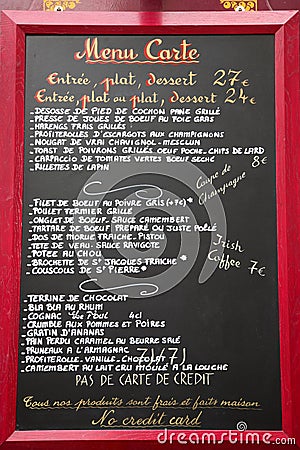 Menu Carte
Entrée, plat, dessert 27€
Entrée, plat ou plat, dessert 24€
-DESOSSE DE PIED DE COCHON PANÉ GRILLÉ
-PRESSE DE JOUES DE BOEUF AU FOIE GRAS
-HARENGS FRAIS GRILLÉS
-PROFITEROLLES D'ESCARGOTS AUX CHAMPIGNONS
-NOUGAT DE VRAI CHAVIGNOL - MESCLUN
-TOAST DE POIVRONS GRILLÉS. OEUF POCHÉ. CHIPS DE LARD
-CARPACCIO DE TOMATES VERTES BOEUF SÉCHÉ
-RILLETTES DE LAPIN
Coupe de Champagne 8€
-FILET DE BOEUF AU POIVRE GRIS (+7€)*
-POULET FERMIER GRILLÉ
-ONGLET DE BOEUF - SAUCE CAMEMBERT
-TARTARE DE BOEUF PRÉPARÉ OU JUSTE POÊLÉ
-DOS DE MORUE FRAICHE - PISTOU
-TETE DE VEAU - SAUCE RAVIGOTE
-POTÉE AU CHOU
-BROCHETTE DE ST JACQUES FRAICHE *
-COUSCOUS DE ST PIERRE *
Irish Coffee 7€
-TERRINE DE CHOCOLAT
-BLA BLA AU RHUM
-COGNAC 4cl
-CRUMBLE AUX POMMES ET POIRES
-GRATIN D'ANANAS
-PAIN PERDU CARAMEL AU BEURRE SALÉ
-PRUNEAUX A L'ARMAGNAC
-PROFITEROLLE - VANILLE - CHOCOLAT
-CAMEMBERT AU LAIT CRU MOULÉ A LA LOUCHE
PAS DE CARTE DE CREDIT
Tous nos produits sont frais et faits maison
No credit card
dreamstime.com